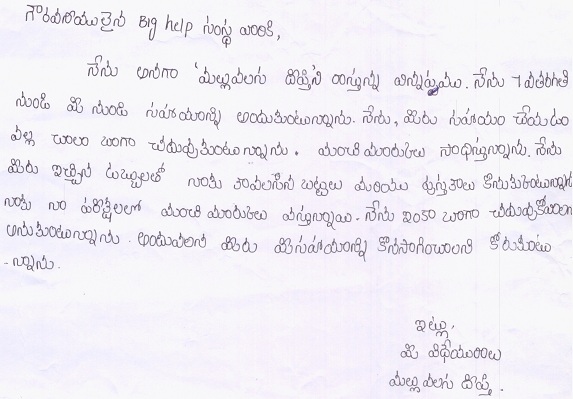 గౌరవనీయులైన Big help సంస్థ వారికి,
నేను అనగా 'మల్లువలస దీప్తి'ని రాస్తున్న విన్నపము. నేను 7వతరగతి
నుండి మీ నుండి సహాయాన్ని అందుకుంటున్నాను. నేను, మీరు సహాయం చేయడం
వల్ల చాలా బాగా చదువుకుంటున్నాను. మంచి మార్కులు సాధిస్తున్నాను. నేను
మీరు ఇచ్చిన డబ్బులతో నాకు కావలసిన బట్టలు మరియు పుస్తకాలు కొనుకుంటున్నాను
నాకు నా పరీక్షలలో మంచి మార్కులు వస్తున్నాయి. నేను ఇంకా బాగా చదువుకోవాలని
అనుకుంటున్నాను. అందువలన మీరు మీ సహాయాన్ని కొనసాగించాలని కోరుకుంటు
-న్నాను.
ఇట్లు,
మీ విధేయురాలు
మల్లువలస దీప్తి.